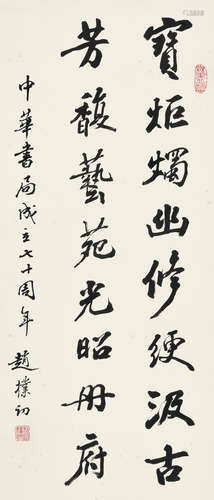 寶炬燭幽修綆汲古
芳馥藝苑光昭册府
中華書局成立七十周年 趙樸初